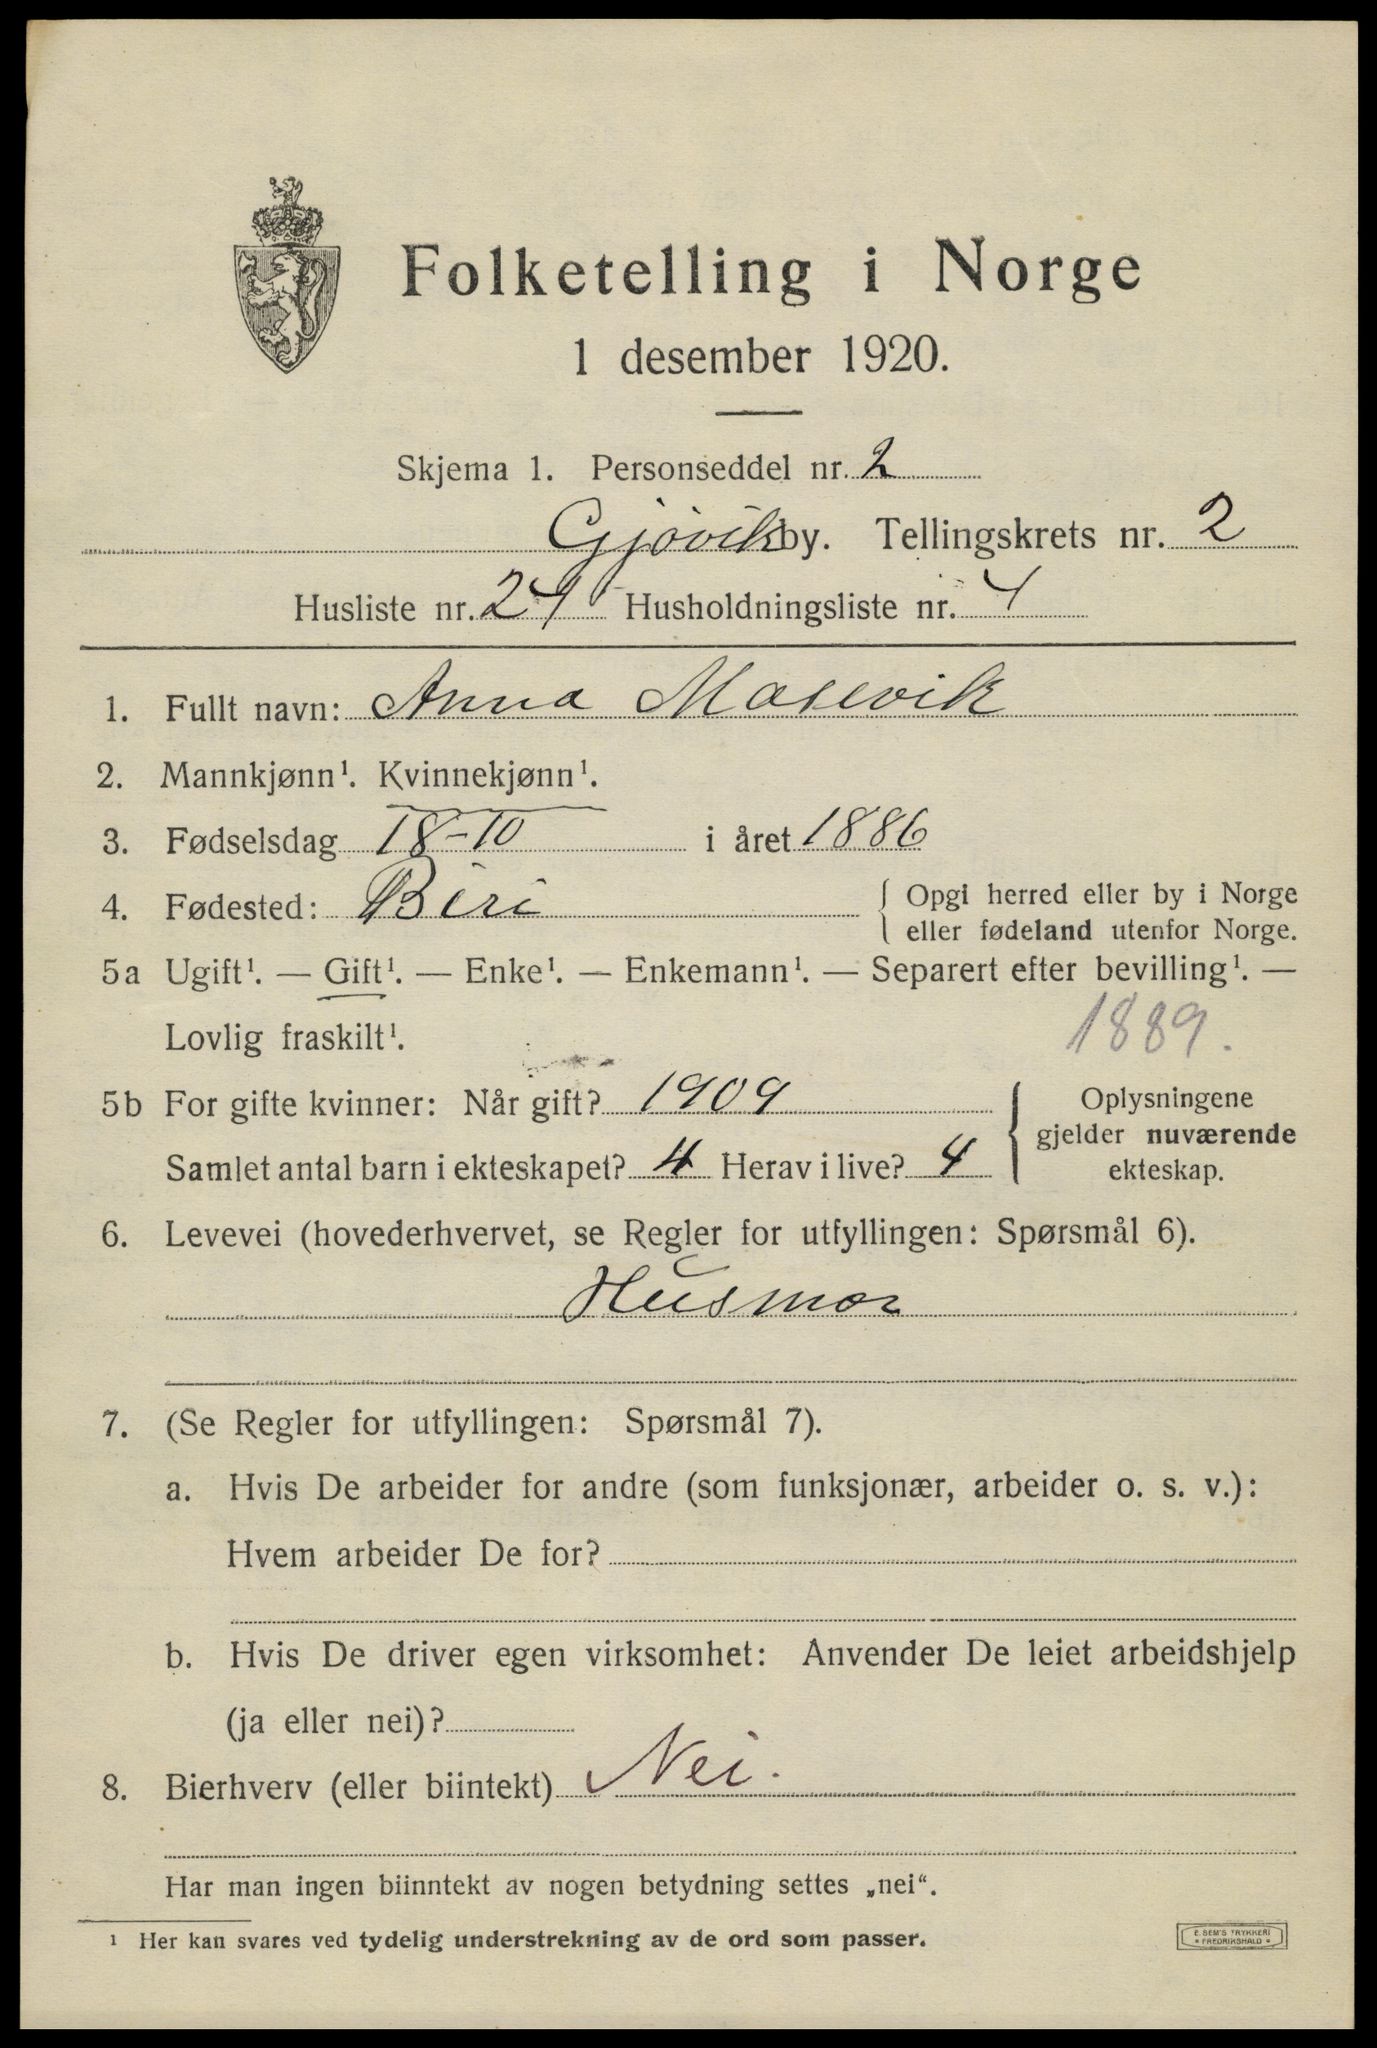 Folketelling i Norge
1 desember 1920.
Skjema 1. Personseddel nr. 2
Gjøvik by. Tellingskrets nr. 2
Husliste nr. 24 Husholdningsliste nr. 4
1. Fullt navn: Anna Masevik
2. Mannkjønn¹. Kvinnekjønn¹.
3. Fødselsdag 18-10 i året 1886
4. Fødested: Biri { Opgi herred eller by i Norge
eller fødeland utenfor Norge.
5a Ugift¹. — Gift¹. — Enke¹. — Enkemann¹. — Separert efter bevilling¹. —
Lovlig fraskilt¹. 1889.
5b For gifte kvinner: Når gift? 1909
Samlet antal barn i ekteskapet? 4 Herav i live? 4
{ Oplysningene
gjelder nuværende
ekteskap.
6. Levevei (hovederhvervet, se Regler for utfyllingen: Spørsmål 6).
Husmor
7. (Se Regler for utfyllingen: Spørsmål 7).
a. Hvis De arbeider for andre (som funksjonær, arbeider o. s. v.):
Hvem arbeider De for?
b. Hvis De driver egen virksomhet: Anvender De leiet arbeidshjelp
(ja eller nei)?
8. Bierhverv (eller biintekt) Nei.
Har man ingen biinntekt av nogen betydning settes „nei“.
¹ Her kan svares ved tydelig understrekning av de ord som passer.
E. SEM'S TRYKKERI
* FREDRIKSHALD *